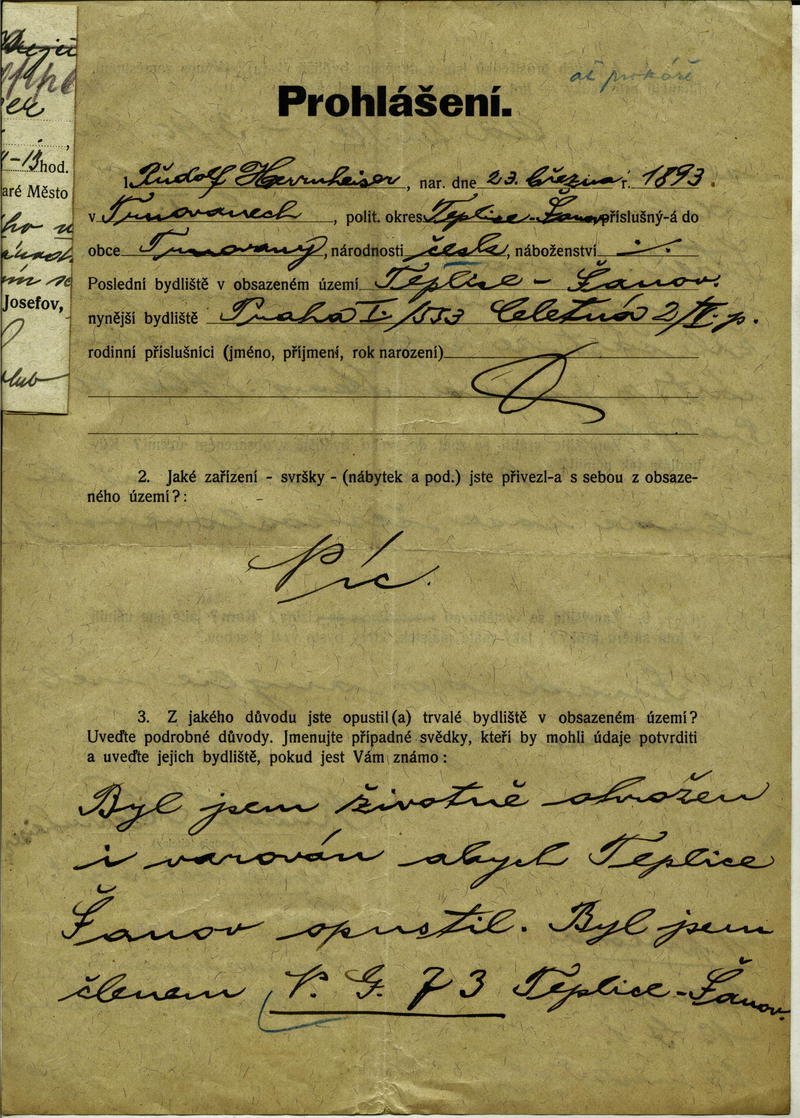 ať prokáže
Prohlášení.
1 Rudolf , nar. dne 23. března r. 1893.
v Trnovanech, polit. okres Teplice-Šanov příslušný-á do
obce Trnovany, národnosti česk, náboženství
Poslední bydliště v obsazeném území Teplice - Šanov.
nynější bydliště Praha I./553 Celetná 2/IV. p.
rodinní příslušníci (jméno, příjmení, rok narození)
2. Jaké zařízení - svršky - (nábytek a pod.) jste přivezl-a s sebou z obsaze-
ného území?:
Nic.
3. Z jakého důvodu jste opustil(a) trvalé bydliště v obsazeném území?
Uveďte podrobné důvody. Jmenujte případné svědky, kteří by mohli údaje potvrditi
a uveďte jejich bydliště, pokud jest Vám známo:
Byl jsem životně ohrožen
i varován abych Teplice
Šanov opustil. Byl jsem
členem N. G. 73 Teplice-Šanov.
-13 hod.
aré Město
Josefov,